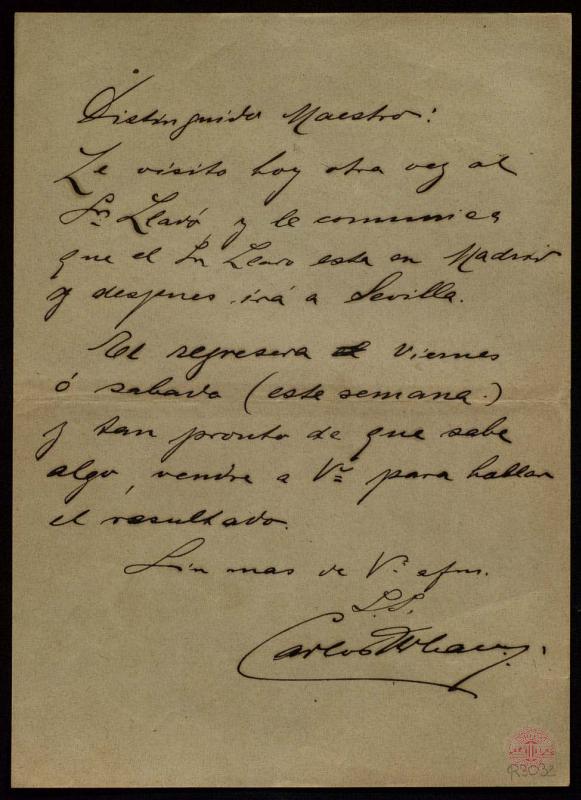 Distinguido Maestro:
Le visito hoy otra vez al
Sr. Llavó, y le comunica
que el Sr Llavo esta en Madrid
y despenes, irá a Sevilla.
El regresera el Viernes
ó sabado (este semana.)
y tan pronto de que sabe
algo, vendre a Vª para hablar
el resultado.
Sin mas de V. afms.
S.S.
Carlos
R3032